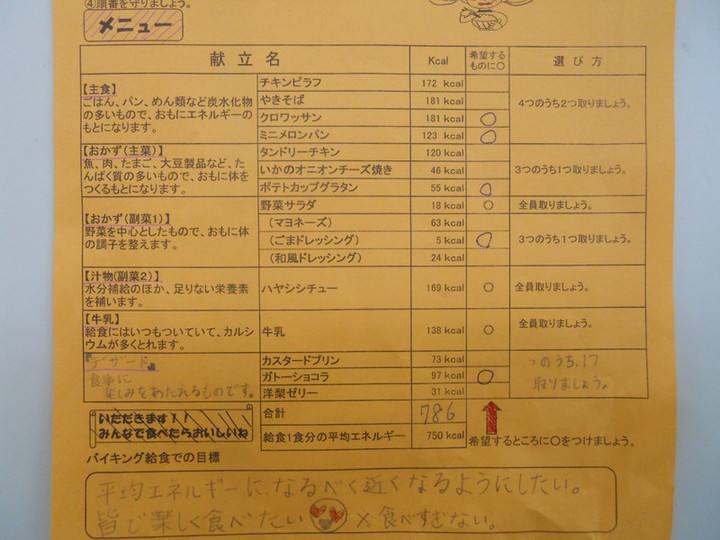 ④順番を守りましょう。
メニュー
献立名 Kcal 希望するものに○ 選び方
【主食】
ごはん、パン、めん類など炭水化物
の多いもので、おもにエネルギーの
もとになります。
チキンピラフ 172 kcal
やきそば 181 kcal
クロワッサン 181 kcal ○
ミニメロンパン 123 kcal ○
4つのうち2つ取りましょう。
【おかず(主菜)】
魚、肉、たまご、大豆製品など、た
んぱく質の多いもので、おもに体を
つくるもとになります。
タンドリーチキン 120 kcal
いかのオニオンチーズ焼き 46 kcal
ポテトカップグラタン 55 kcal ○
3つのうち1つ取りましょう。
【おかず(副菜1)】
野菜を中心としたもので、おもに体
の調子を整えます。
野菜サラダ 18 kcal ○ 全員取りましょう。
(マヨネーズ) 63 kcal
(ごまドレッシング) 5 kcal ○
(和風ドレッシング) 24 kcal
3つのうち1つ取りましょう。
【汁物(副菜2)】
水分補給のほか、足りない栄養素
を補います。
ハヤシシチュー 169 kcal ○ 全員取りましょう。
【牛乳】
給食にはいつもついていて、カルシ
ウムが多くとれます。
牛乳 138 kcal ○ 全員取りましょう。
デザート
食事に
楽しみをあたれるものです。
カスタードプリン 73 kcal
ガトーショコラ 97 kcal ○
洋梨ゼリー 31 kcal
つのうち、1つ
取りましょう。
いただきます!!
みんなで食べたらおいしいね
合計 786
給食1食分の平均エネルギー 750 kcal
希望するところに○をつけましょう。
バイキング給食での目標
平均エネルギーに、なるべく近くなるようにしたい。
皆で楽しく食べたい × 食べすぎない。